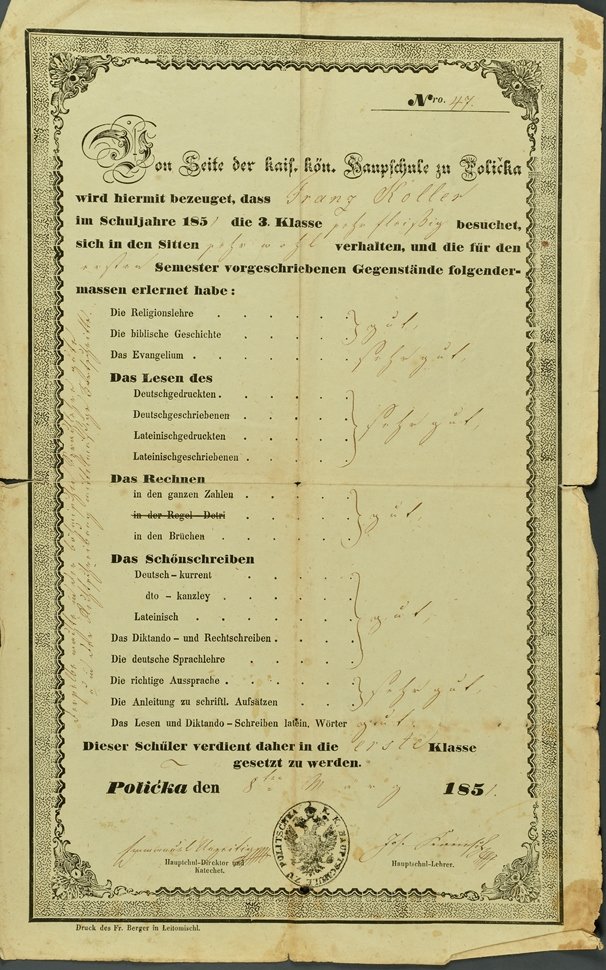 Nro. 47.
Von Seite der kais. kön. Haupschule zu Polička
wird hiermit bezeuget, dass Franz Koller
im Schuljahre 1851 die 3. Klasse sehr fleißig besuchet,
sich in den Sitten sehr wohl verhalten, und die für den
ersten Semester vorgeschriebenen Gegenstände folgender-
massen erlernet habe:
Die Religionslehre
Die biblische Geschichte gut,
Das Evangelium sehr gut,
Das Lesen des
Deutschgedruckten
Deutschgeschriebenen sehr gut,
Lateinischgedruckten
Lateinischgeschriebenen
Das Rechnen
in den ganzen Zahlen
in der Regel Detri gut,
in den Brüchen
Das Schönschreiben
Deutsch - kurrent
dto - kanzley
Lateinisch gut,
Das Diktando - und Rechtschreiben
Die deutsche Sprachlehre
Die richtige Aussprache sehr gut,
Die Anleitung zu schriftl. Aufsätzen
Das Lesen und Diktando - Schreiben latein. Wörter gut.
Dieser Schüler verdient daher in die erste Klasse
gesetzt zu werden.
Polička den 8ten März 1851.
Emmanuel
Hauptschul-Direktor und
Katechet.
Jos.
Hauptschul-Lehrer.
Druck des Fr. Berger in Leitomischl.